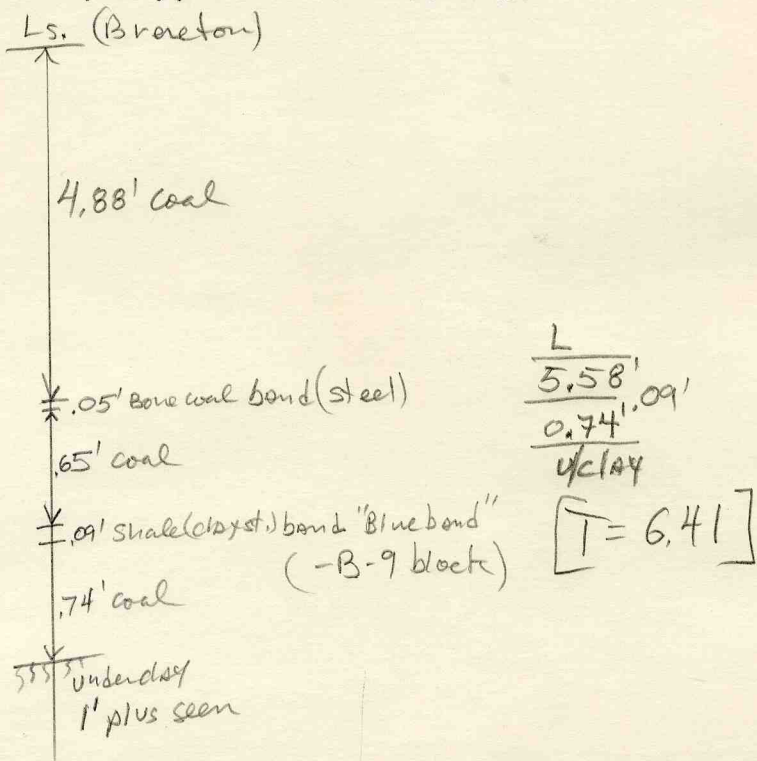 Ls. (Brereton)
4.88' coal
.05' Bone coal band (steel)
.65' coal
.09' shale (clayst.) band "Blue band"
(-B-9 block)
.74' coal
underclay
1' plus seen
L
5.58'
.09'
0.74'
U/clay
[T = 6.41]